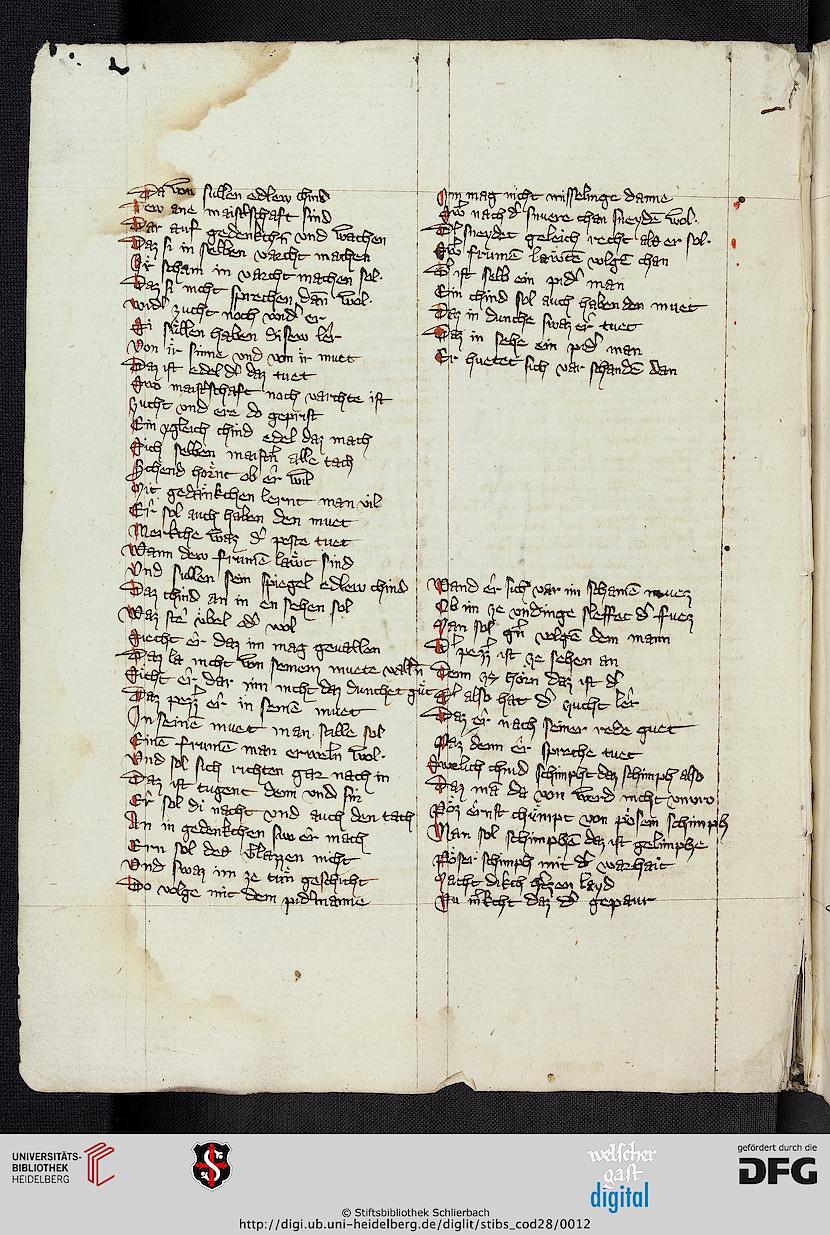 Da von sullen edlew chind
Dew ane maist͛schaft sind
Dar auf gedenkchn̄ vnd wachen
Daz si in selben varcht machen
Ir scham in varcht machen sol·
Daz si nicht sprechen dañ wol·
wid͛ zucht noch wid͛ er
Si sullen haben disew ler
Von ir sinne vnd von ir muet
Daz ist edel d͛ daz tuet
Swo maist͛schaft noch varchte ist
zucht vnd ere do geprist
Ein ygleich chind edel daz mach
Sich selben maist͛n alle tach
Schend hornt ob er wil
Mit gedankchen lernt man vil
Er sol auch haben den muet
Merkche waz d͛ peste tuet
Wann dew frumē lawt sind
Vnd sullen sein spiegel edlew chind
Daz chind an in en sehen sol
Waz ste vbel od͛ wol
Siecht er daz im mag geuallen
Daz la nicht von seinem muete valln̄
Sicht er dar inn nicht daz dunchet gut
Daz pezz͛ er in seinē muet
In seinē muet man stille sol
Einē frumē man erweln̄ wol·
Vnd sol sich richten gar nach in
Daz ist tugent denn vnd sin
Er sol di nacht vnd auch den tach
An in gedenkchen swo er mach
Ern sol des Clazzen nicht
Vnd swaz im ze tun geschicht
Do volge mit dem pid͛manne
Im mag nicht misselinge danne
Swo nach d͛ snuere chan sneydē wol·
D͛ sneydet geleich recht als er sol·
Swo frumē lawtē volgē chan
D͛ ist selb ein pid͛ man
Ein chind sol auch haben den muet
Daz in dunche swaz er tuet
Daz in sehe ein pid͛ man
Er huetet sich var schandē dan
Wand er sich var im schamē muez
Ob im ze vndinge sleffet d͛ fuez
Man sol gn̄ volgē dem mann
D͛ pezz͛ ist ze sehen an
Denn ze horn daz ist d͛
D͛ also hat d͛ zucht ler
Daz er nach seiner rede guet
Paz denn er spreche tuet
Swelich chind schimpht daz schimph also
Daz mā da von werd nicht vnvro
Poz ernst chumpt von posem schimph
Man sol schimphē daz ist gelimphe
Poser schimph mit d͛ warhait
Macht dikch h͛tzen layd
Nu m͛kcht daz d͛ gepaur
UNIVERSITÄTS-
BIBLIOTHEK
HEIDELBERG
welscher
gast
digital
gefördert durch die
DFG
© Stiftsbibliothek Schlierbach
http://digi.ub.uni-heidelberg.de/diglit/stibs_cod28/0012